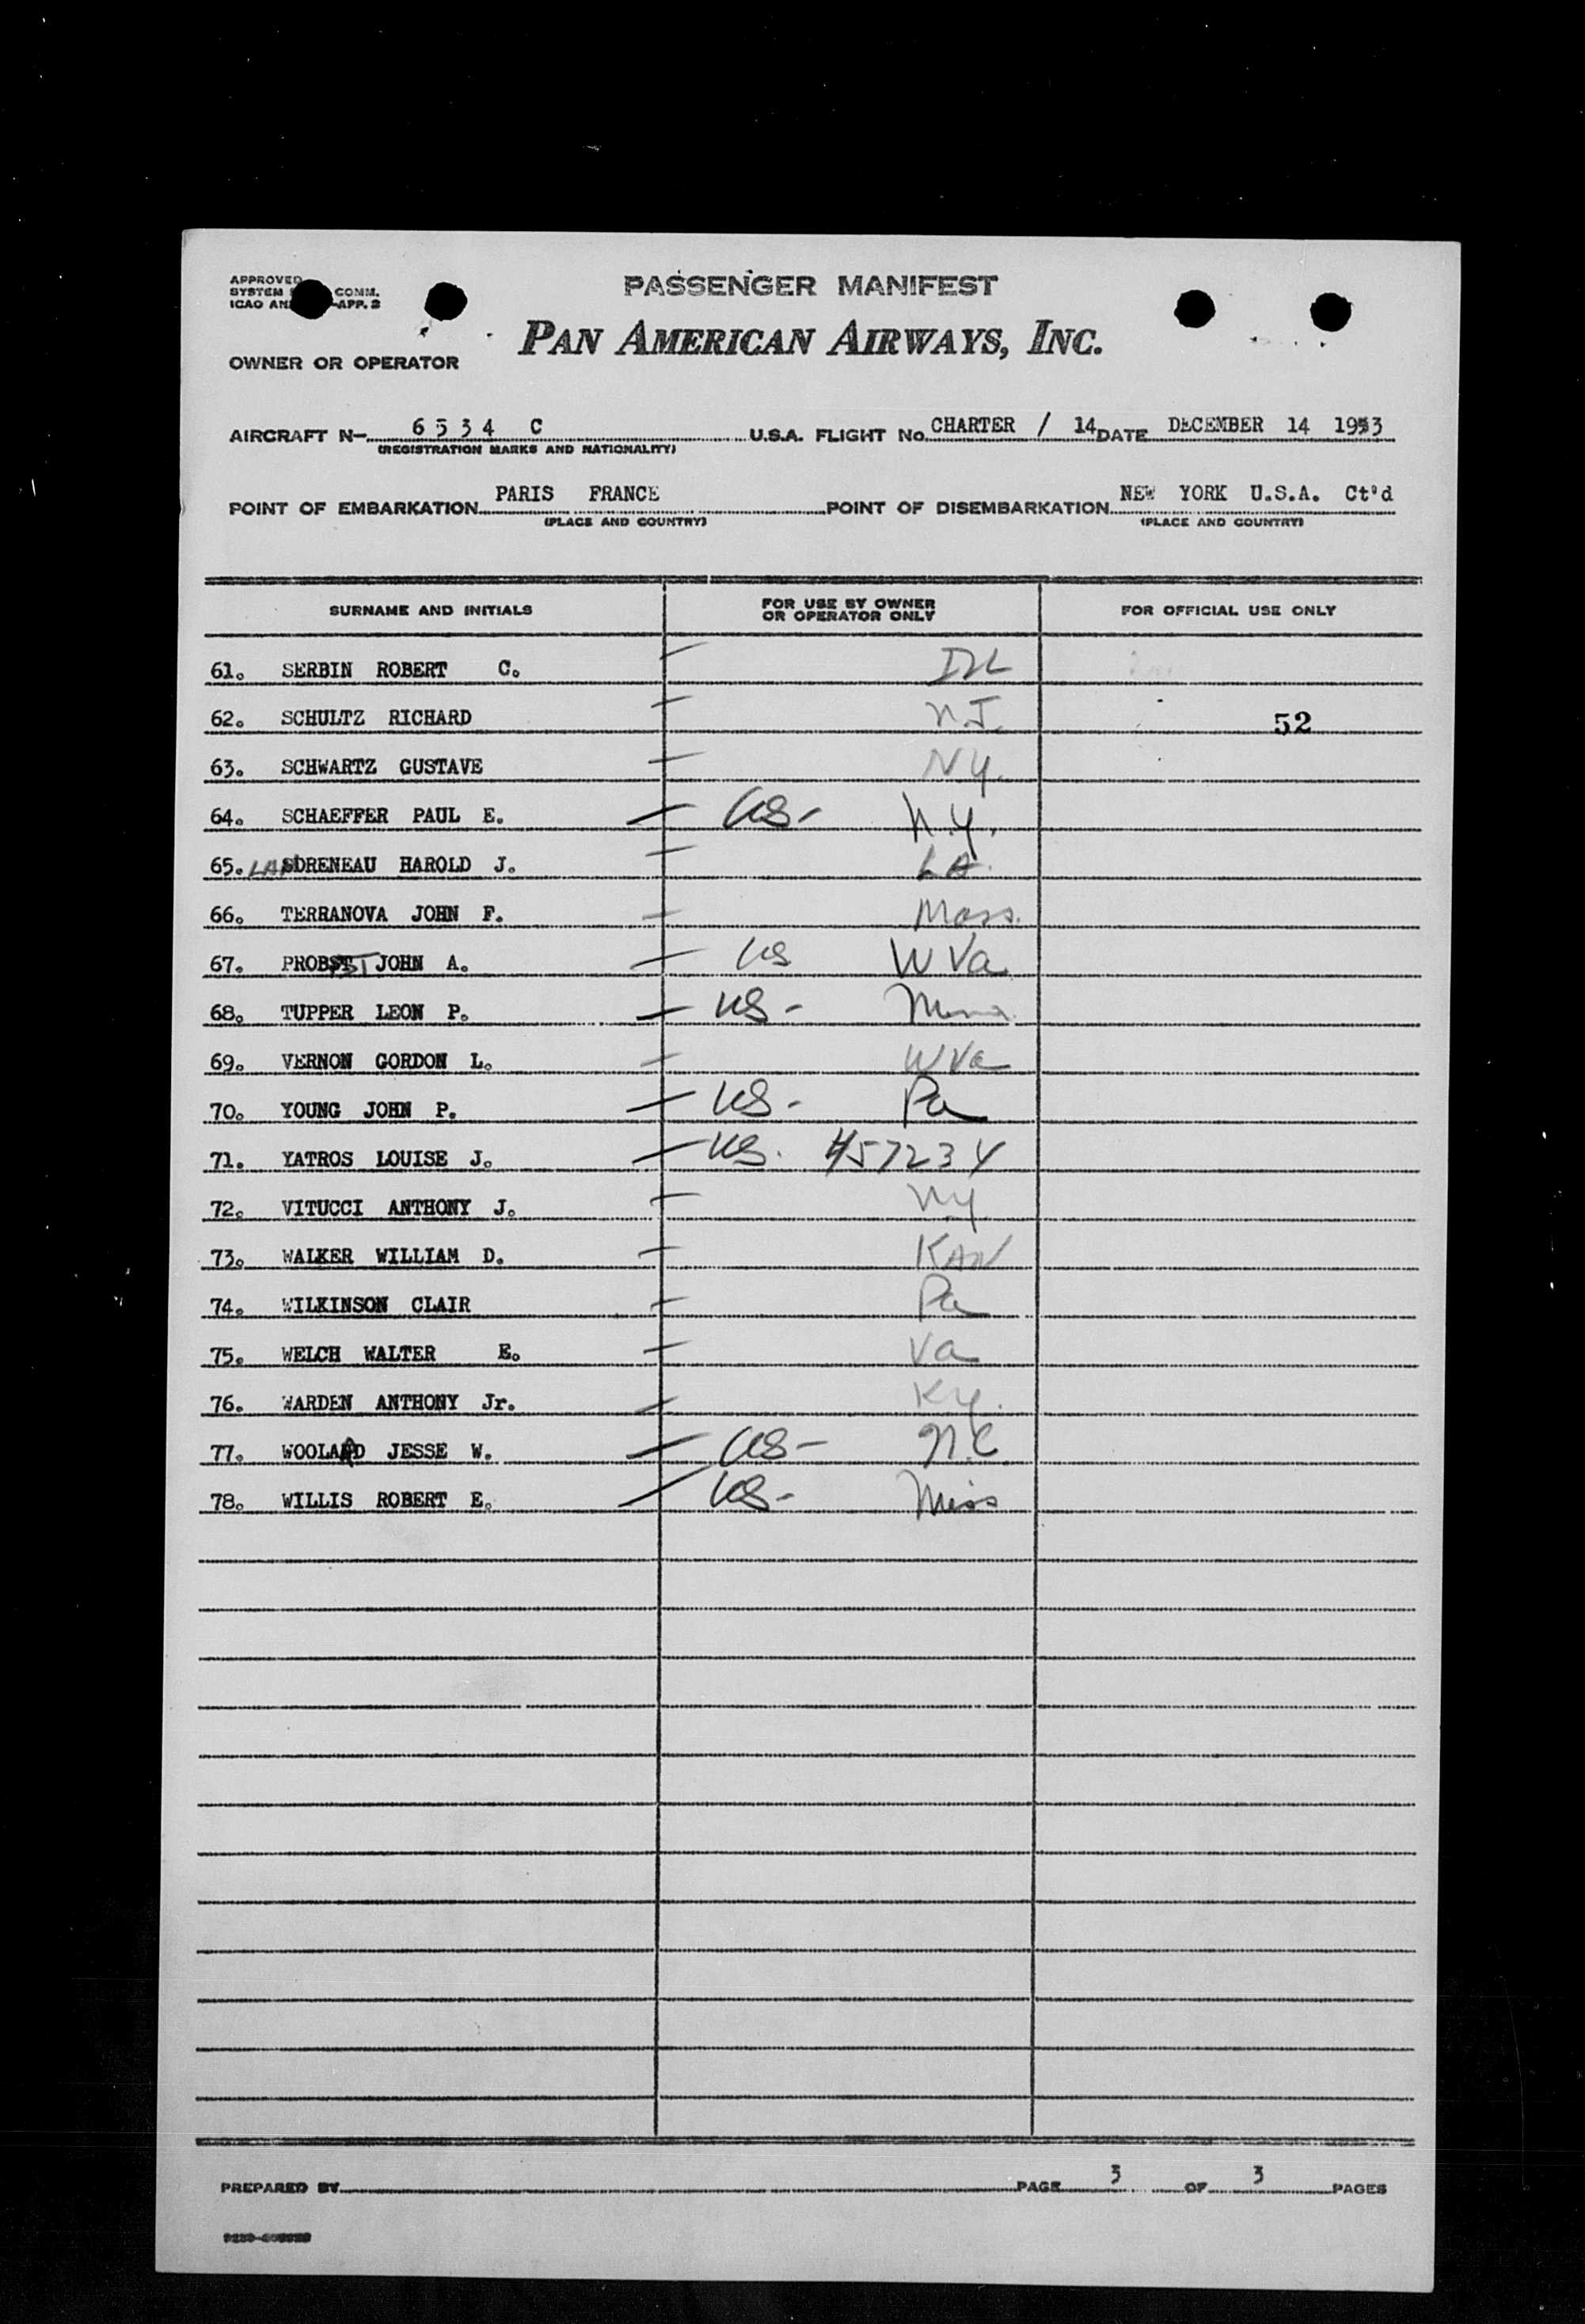 APPROVED
SYSTEM COMM.
ICAO AN -APP. 2
PASSENGER MANIFEST
PAN AMERICAN AIRWAYS, INC.
OWNER OR OPERATOR
AIRCRAFT N- 6534 C U.S.A. FLIGHT No. CHARTER / 14 DATE DECEMBER 14 1953
(REGISTRATION MARKS AND NATIONALITY)
POINT OF EMBARKATION PARIS FRANCE POINT OF DISEMBARKATION NEW YORK U.S.A. Ct'd
(PLACE AND COUNTRY) (PLACE AND COUNTRY)
SURNAME AND INITIALS FOR USE BY OWNER OR OPERATOR ONLY FOR OFFICIAL USE ONLY
61. SERBIN ROBERT C. — ILL
62. SCHULTZ RICHARD — N.J. 52
63. SCHWARTZ GUSTAVE — NY.
64. SCHAEFFER PAUL E. — US- N.Y.
65. LANDRENEAU HAROLD J. — LA.
66. TERRANOVA JOHN F. — Mass.
67. PROBST JOHN A. — US W Va
68. TUPPER LEON P. — US -
69. VERNON GORDON L. — W Va
70. YOUNG JOHN P. — US - Pa
71. YATROS LOUISE J. — US. 457234
72. VITUCCI ANTHONY J. — NY
73. WALKER WILLIAM D. — KAN
74. WILKINSON CLAIR — Pa
75. WELCH WALTER E. — Va
76. WARDEN ANTHONY Jr. — Ky.
77. WOOLARD JESSE W. — US - N.C
78. WILLIS ROBERT E. — US - Miss
PREPARED BY PAGE 3 OF 3 PAGES